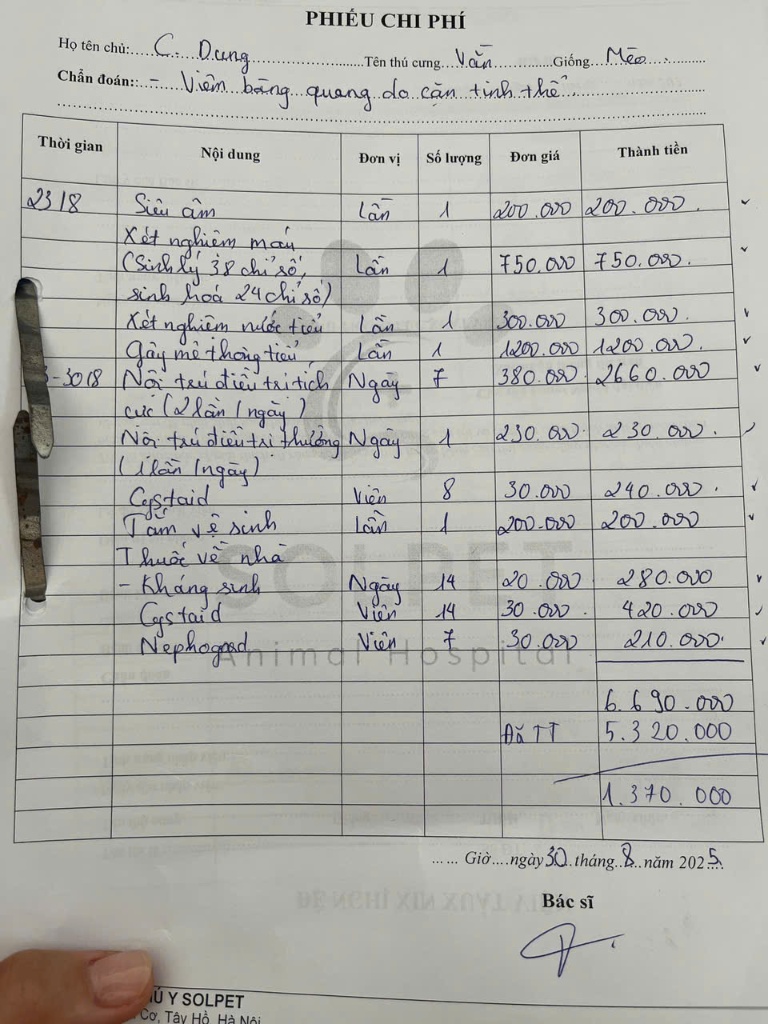 PHIẾU CHI PHÍ
Họ tên chủ:.....C. Dung..............Tên thú cưng Vằn......Giống...Mèo......
Chẩn đoán:: - Viêm bàng quang do cặn tinh thể
Thời gian Nội dung Đơn vị Số lượng Đơn giá Thành tiền
23/8 Siêu âm Lần 1 200.000 200.000.
Xét nghiệm máu
(Sinh lý 38 chỉ số, Lần 1 750.000 750.000.
sinh hoá 24 chỉ số)
Xét nghiệm nước tiểu Lần 1 300.000 300.000.
Gây mê thông tiểu Lần 1 1200.000 1200.000
-30/8 Nội trú điều trị tích Ngày 7 380.000 2660.000
cực (2 lần / ngày)
Nội trú điều trị thường Ngày 1 230.000 230.000.
(1 lần / ngày)
Cystaid Viên 8 30.000 240.000.
Tắm vệ sinh Lần 1 200.000 200.000
Thuốc về nhà
- Kháng sinh Ngày 14 20.000 280.000
Cystaid Viên 14 30.000 420.000
Nephogad Viên 7 30.000 210.000.
SOLPET
Animal Hospital
6.690.000
Đã TT 5.320.000
1.370.000
...... Giờ....ngày 30 tháng 8 năm 2025
Bác sĩ
Ú Y SOLPET
Cơ, Tây Hồ, Hà Nội